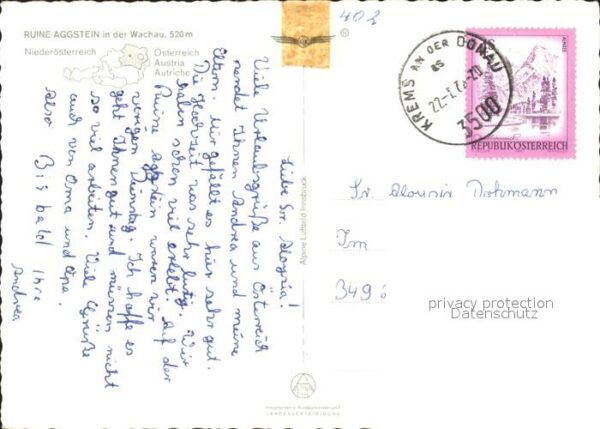 RUINE AGGSTEIN in der Wachau, 520 m
Niederösterreich
Österreich
Austria
Autriche
402
®
KREMS AN DER DONAU
3500
REPUBLIK ÖSTERREICH
Liebe Sr. Aloysia!
Viele Urlaubsgrüße aus Österreich
sendet Ihnen Andrea und meine
Eltern. Mir gefällt es hier sehr gut.
Die Hochzeit war sehr lustig. Wir
haben schon viel erlebt. Auf der
Ruine Aggstein waren wir
vorigen Dienstag. Ich hoffe es
geht Ihnen gut und müssen nicht
so viel arbeiten. Viele Grüße
auch von Oma und Opa.
also Bis bald Ihre
Andrea
Alpine Luftbild Innsbruck
Sr. Aloisia Dohmann
Im
349
privacy protection
Datenschutz
LANDESVERTEIDIGUNG